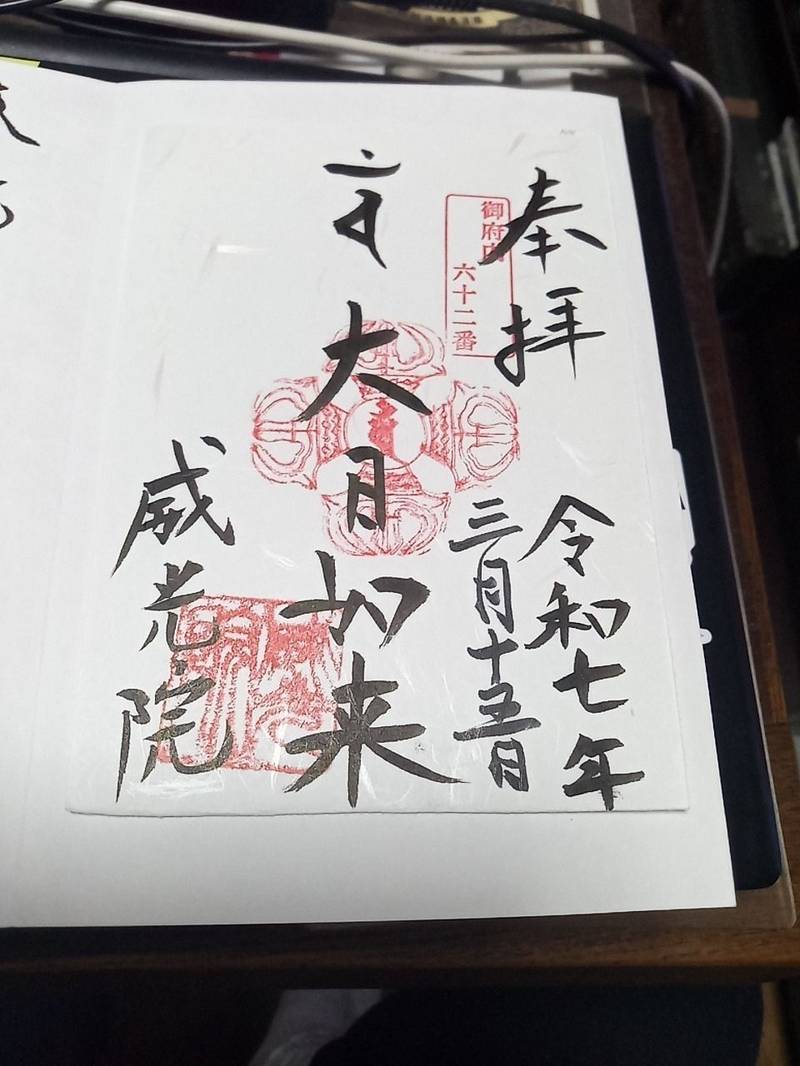 奉拝
御府内
六十二番
令和七年
三月十五日
大日如来
威光院